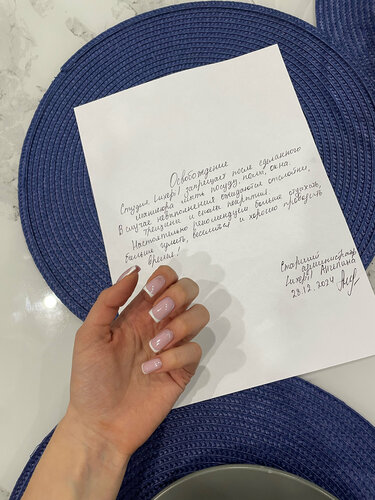 Освобождение
Студия Luxeri запрещает после сделанного
маникюра мыть посуду, полы, окна.
В случае невыполнения ожидаются отслойки,
трещины и сколы покрытия
Настоятельно рекомендуем больше отдыхать,
больше гулять, веселиться и хорошо проводить
время!
Старший
администратор
Luxeri Ангелина
23.12.2024